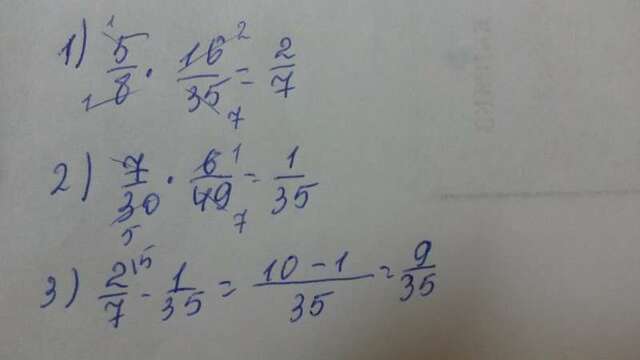 1) 5/8 · 16/35 = 2/7 1 1 2 7
2) 7/30 · 6/49 = 1/35 5 1 7
3) 2/7 - 1/35 = 10-1/35 = 9/35 15